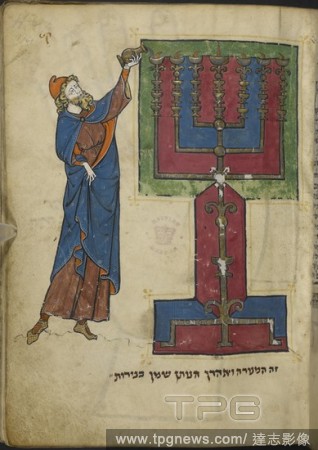 זה המנורה ואהרן הנותן שמן בנירות
TPG
www.tpgnews.com/ 達志影像